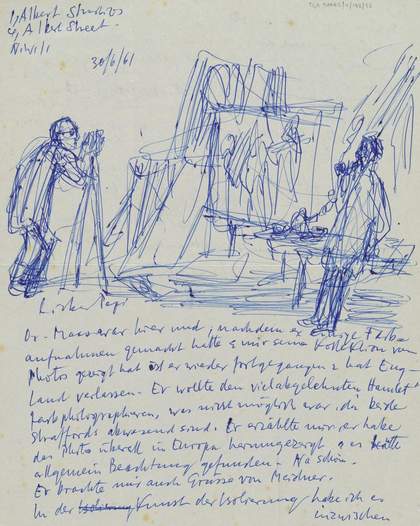 7, Albert Studios
Albert Street.
N.W.11
30/6/61
Lieber
Dr. Maas war hier und, nachdem er einige Farb-
aufnahmen gemacht hatte & mir seine Kollektion von
Photos gezeigt hat ist er wieder fortgegangen & hat Eng-
land verlassen. Er wollte den vielabgelehnten Hamlet
farbphotographieren, was nicht möglich war, da beide
Straffords abwesend sind. Er erzählte mir, er habe
das Photo überall in Europa herumgezeigt & es hätte
allgemein Beachtung gefunden. Na schön.
Er brachte mir auch Grüsse von Meidner.
In der Kunst der Isolierung habe ich es
inzwischen